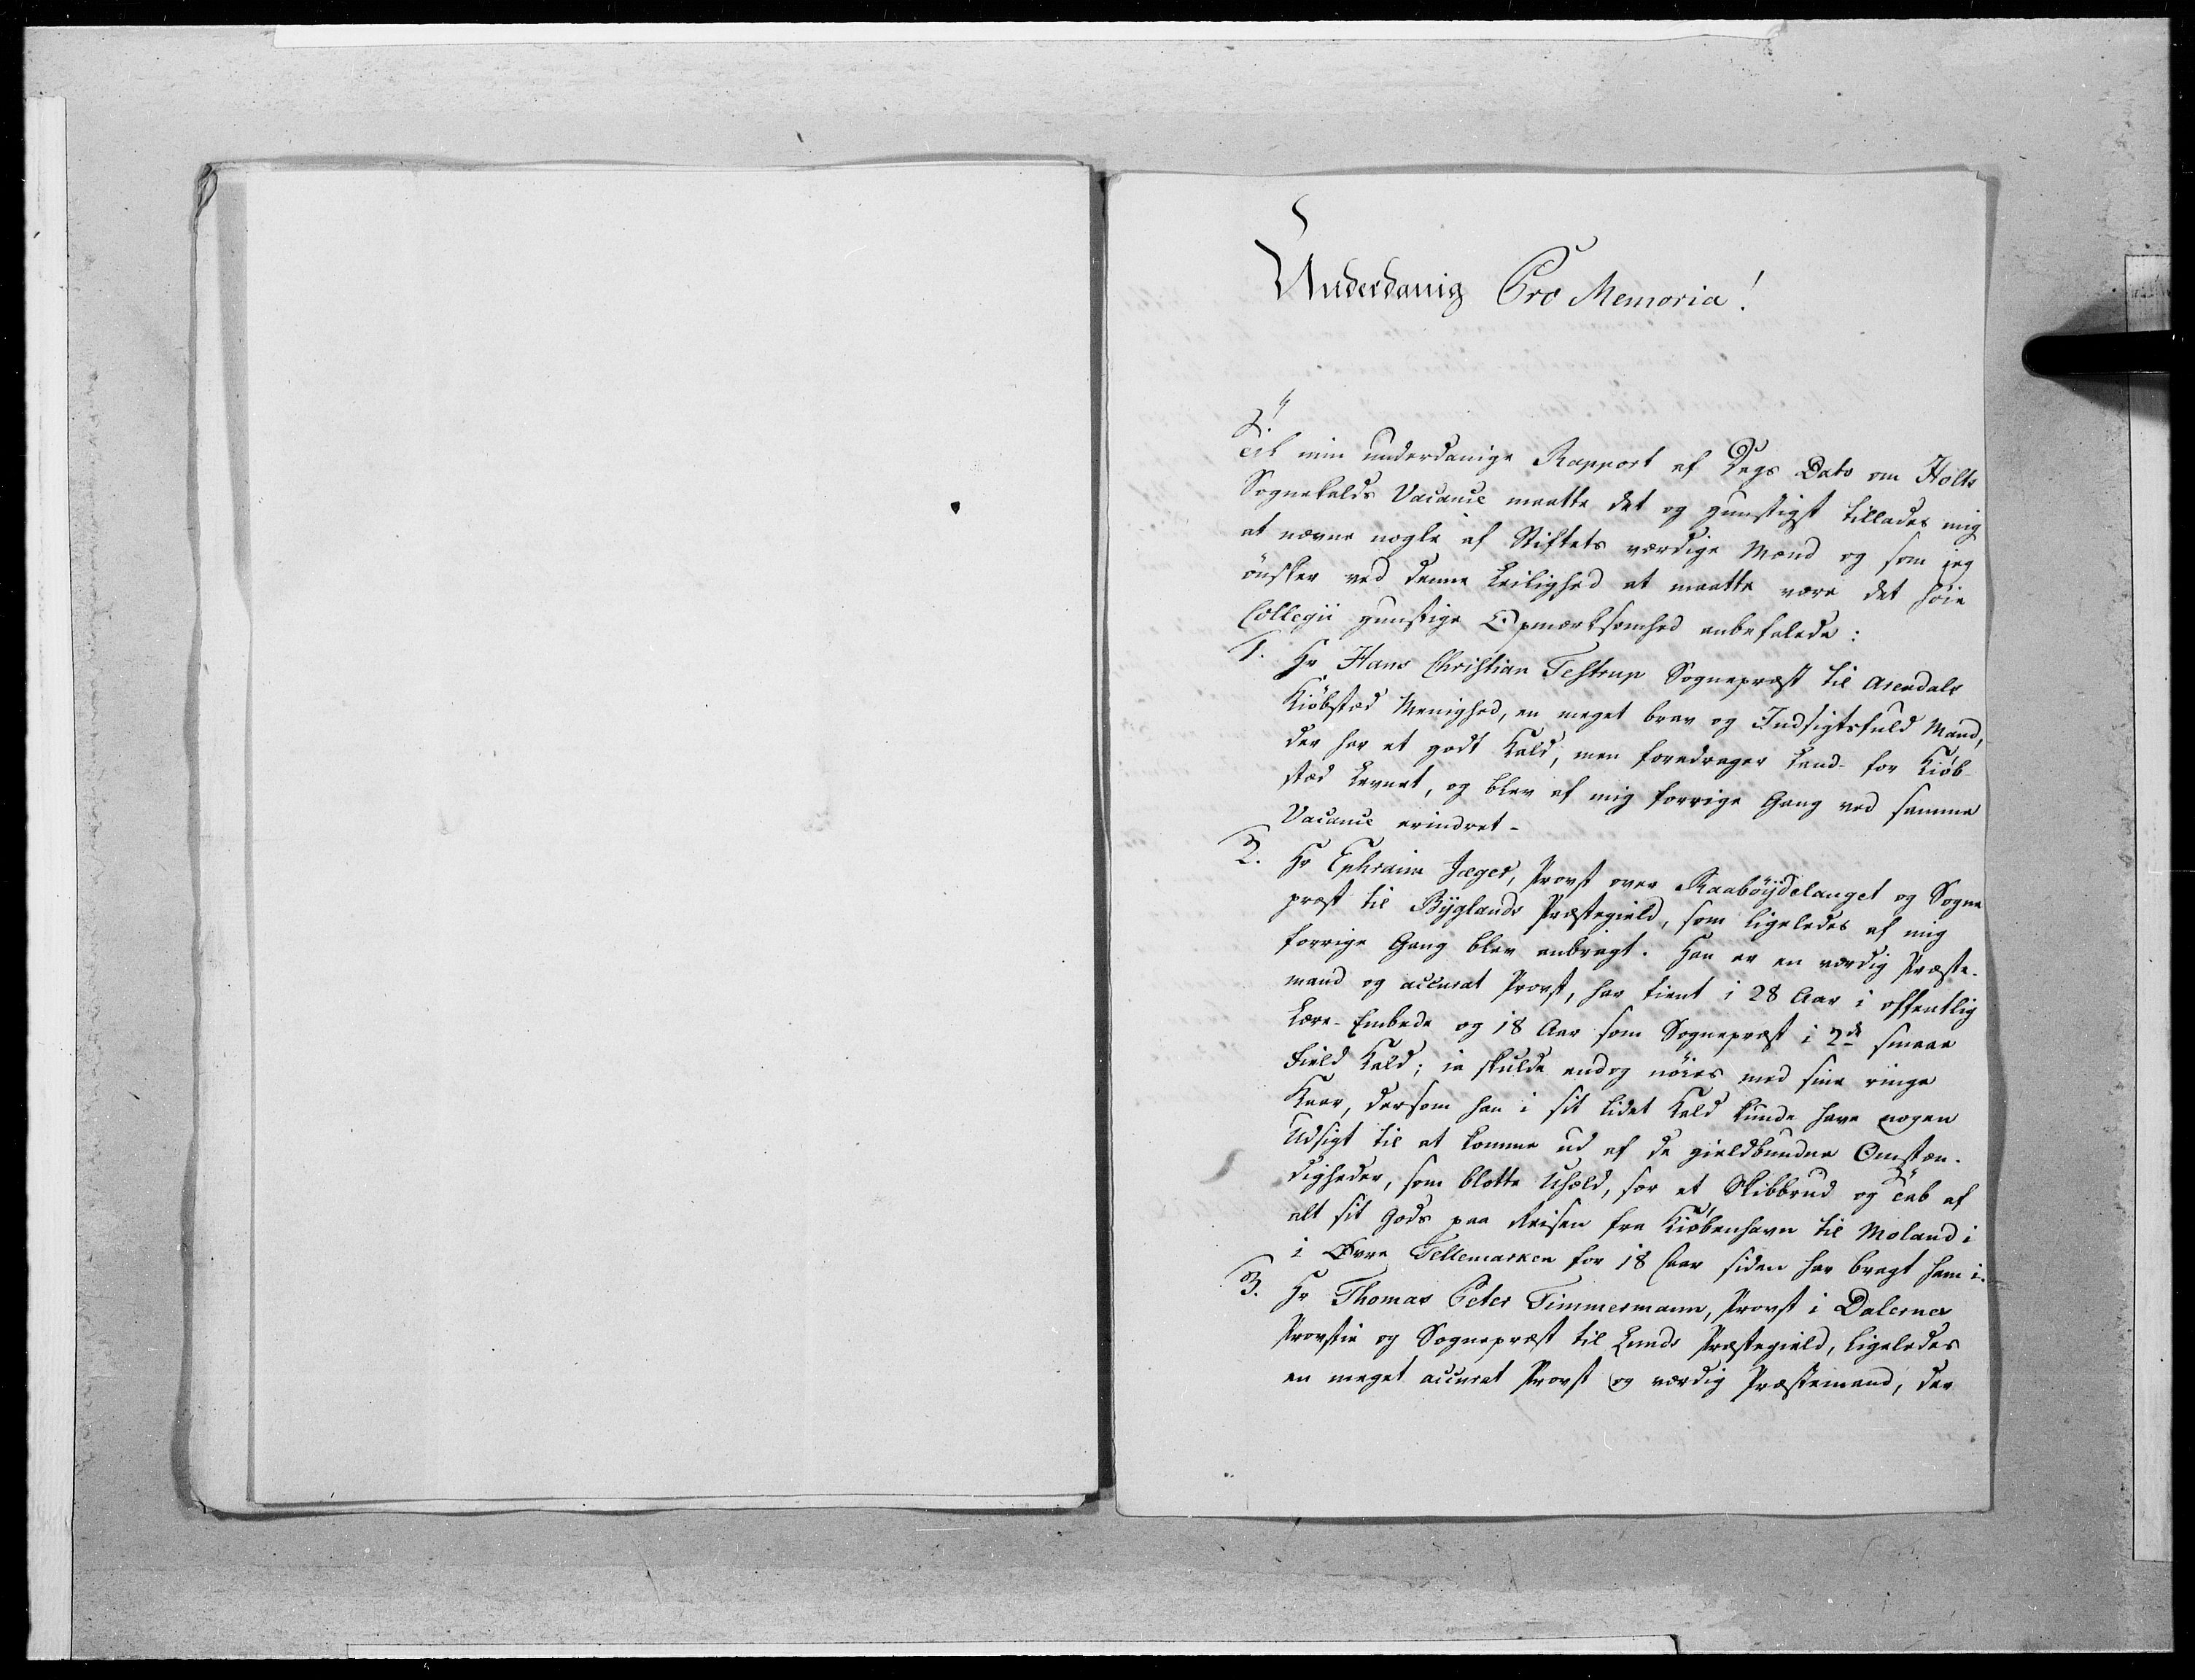 Underdanig Pro Memoria!
Til min underdanige Rapport af Dags Dato om Holts
Sognekalds Vacance maatte det og gunstigst tillades mig
at nævne nogle af Stiftets værdige Mænd og som jeg
ønsker ved denne Leilighed at maatte være det høie
Collegii gunstige Opmærksomhed anbefalede:
1. Hr Hans Christian Testrup Sognepræst til Arendals
Kiöbstæd Menighed, en meget brav og Indsigtsfuld Mand,
der har et godt Kald, men foredrager Land- for Kiöb-
stæd Levnet, og blev af mig forrige Gang ved samme
Vacance erindret-
2. Hr Ephraim Jæger, Provst over Raaböijdelauget og Sogne
præst til Bijglands Præstegield, som ligeledes af mig
forrige Gang blev anbragt. Han er en værdig Præste-
mand og accurat Provst, har tient i 28 Aar i offentlig
Lære-Embede og 18 Aar som Sognepræst i 2de smaae
Field Kald; ja skulde endog nöies med sine ringe
Kaar, dersom han i sit lidet Kald kunde have nogen
Udsigt til at komme ud af de gieldbundne Omstæn-
digheder, som blotte Uheld, som et Skibbrud og Tab af
alt sit Gods paa Reisen fra Kiöbenhavn til Moland i
i Övre Tellemarken for 18 Aar siden har bragt ham i.
3. Hr Thomas Peter Timmermann, Provst i Dalernes
Provstie og Sognepræst til Lunds Præstegield, ligeledes
en meget accurat Provst og værdig Præstemand, der